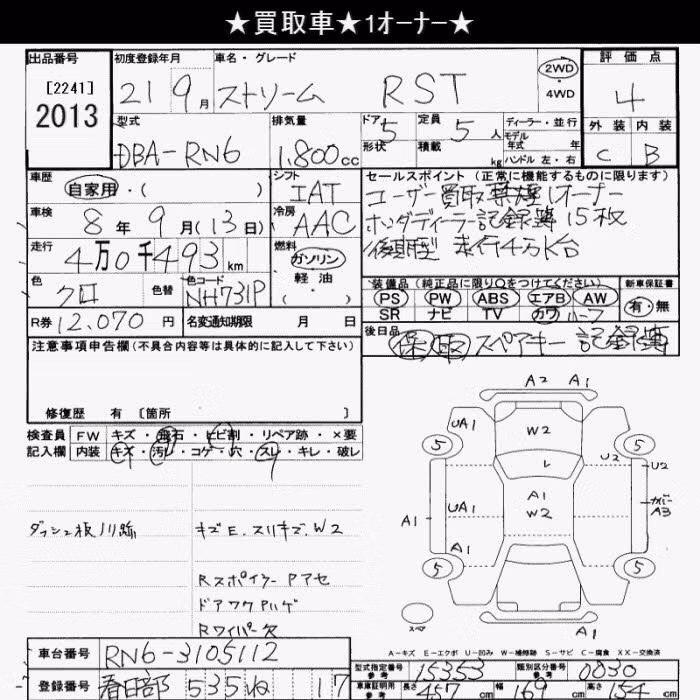 ★買取車★1オーナー★
出品番号 初度登録年月 車名・グレード 評価点
[2241]
2013
21 9月 ストリーム RST 2WD ・ 4WD 4
型式 排気量 ドア 定員 ディーラー・並行 外装 内装
DBA-RN6 1,800cc 5 5人 モデル 年式 年 C B
形状 積載 kg ハンドル 左・右
車歴 シフト セールスポイント(正常に機能するものに限ります)
自家用・( ) IAT ユーザー買取 禁煙 1オーナー
車検 8年9月(13日) 冷房 AAC ホンダディーラー記録簿15枚
走行 4万0千493km 燃料 ガソリン 軽油 後期型 走行4万k台
色 クロ 色替 色コード NH731P ・( )
装備品(純正品に限り○をつけてください) 新車保証書
PS PW ABS エアB AW 有・無
SR ナビ TV カワ ハーフ
R券 12,070円 名変通知期限 月 日 後日品
保 取 スペアキー 記録簿
注意事項申告欄(不具合内容等は具体的に記入して下さい)
修復歴 有 [箇所 ]
検査員 FW キズ・飛石・ヒビ割・リペア跡・×要
記入欄 内装 キズ・汚レ・コゲ・穴・スレ・キレ・破レ
ダッシュ板ノリ跡 キズE.スリキズ.W2
Rスポイラー Pアセ
ドアワクPハゲ
Rワイパー欠
A2 A1
UA1 W2
5 5
U2 U2
レ
A1
W2
A1 UA1 カバー A3
A1
5 5
スペア A1
A-キズ E-エクボ U-凹み W-補修跡 S-サビ C-腐食 XX-交換済
車台番号 RN6-3105112
型式指定番号 参考 15353 類別区分番号 参考 0030
登録番号 春日部 535 ね 17
車庫証明用 参考 長さ 457cm 幅 169cm 高さ 154cm